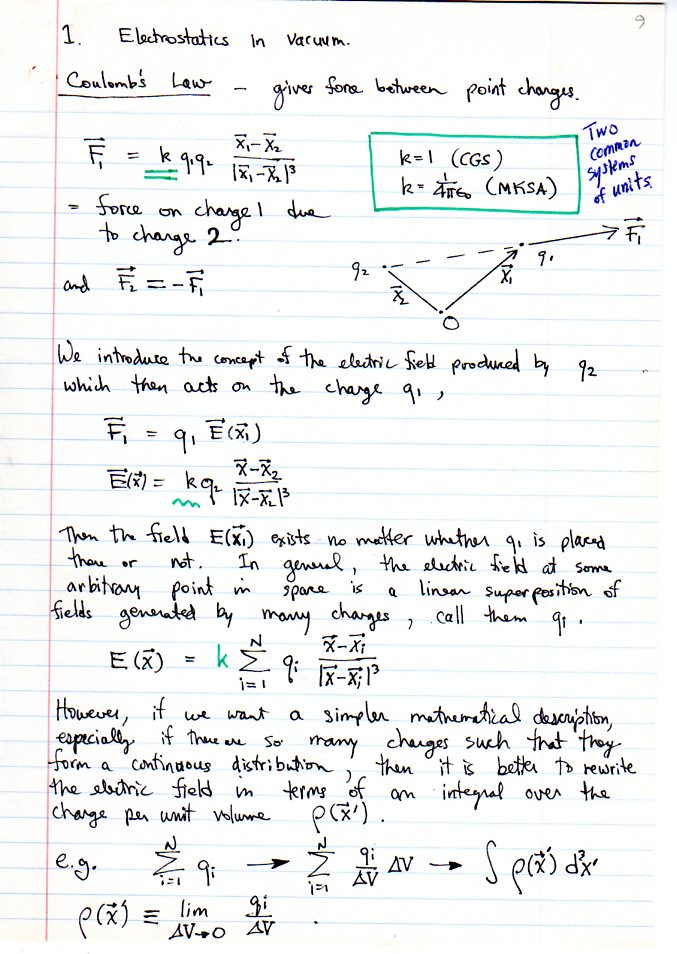 9
1. Electrostatics in vacuum.
Coulomb's Law – gives force between point charges.
F⃗₁ = k q₁q₂ (x⃗₁−x⃗₂)/|x⃗₁−x⃗₂|³
k=1 (CGS)
k= 1/4πε₀ (MKSA)
Two
common
systems
of units.
= force on charge 1 due
to charge 2.
and F⃗₂ = −F⃗₁
q₂ x⃗₂ O x⃗₁ q₁ F⃗₁
We introduce the concept of the electric field produced by q₂
which then acts on the charge q₁,
F⃗₁ = q₁ E⃗(x⃗₁)
E⃗(x⃗) = k q₂ (x⃗−x⃗₂)/|x⃗−x⃗₂|³
Then the field E(x⃗₁) exists no matter whether q₁ is placed
there or not. In general, the electric field at some
arbitrary point in space is a linear superposition of
fields generated by many charges, call them qᵢ.
E(x⃗) = k ∑ᵢ₌₁ᴺ qᵢ (x⃗−x⃗ᵢ)/|x⃗−x⃗ᵢ|³
However, if we want a simpler mathematical description,
especially if there are so many charges such that they
form a continuous distribution, then it is better to rewrite
the electric field in terms of an integral over the
charge per unit volume ρ(x⃗′).
e.g. ∑ᵢ₌₁ᴺ qᵢ → ∑ᵢ₌₁ᴺ qᵢ/ΔV ΔV → ∫ ρ(x⃗′) d³x′
ρ(x⃗′) ≡ lim ΔV→0 qᵢ/ΔV .